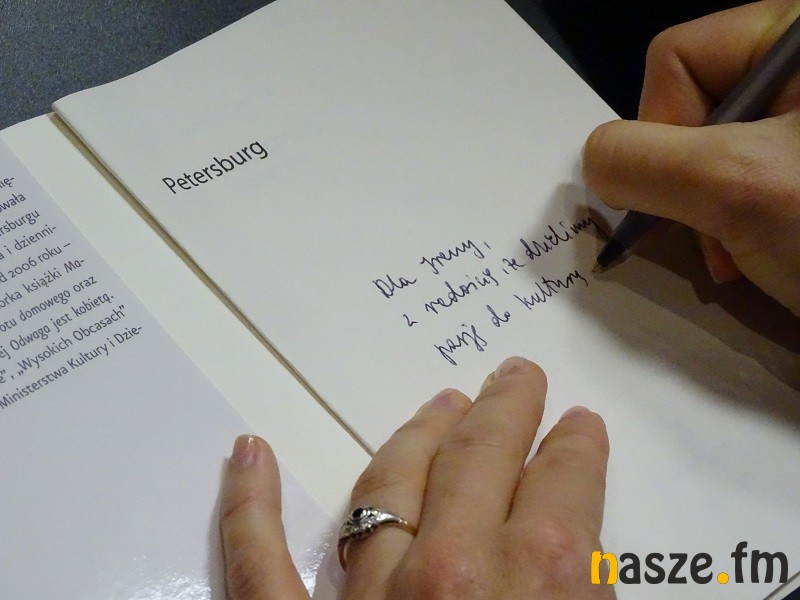 ię-
owała
ersburgu
a i dzienni-
d 2006 roku –
órka książki Ma-
otu domowego oraz
ej Odwaga jest kobietą.
e", „Wysokich Obcasach"
Ministerstwa Kultury i Dzie-
Petersburg
Dla Ireny,
z radością, że dzielimy
pasję do kultury
nasze.fm